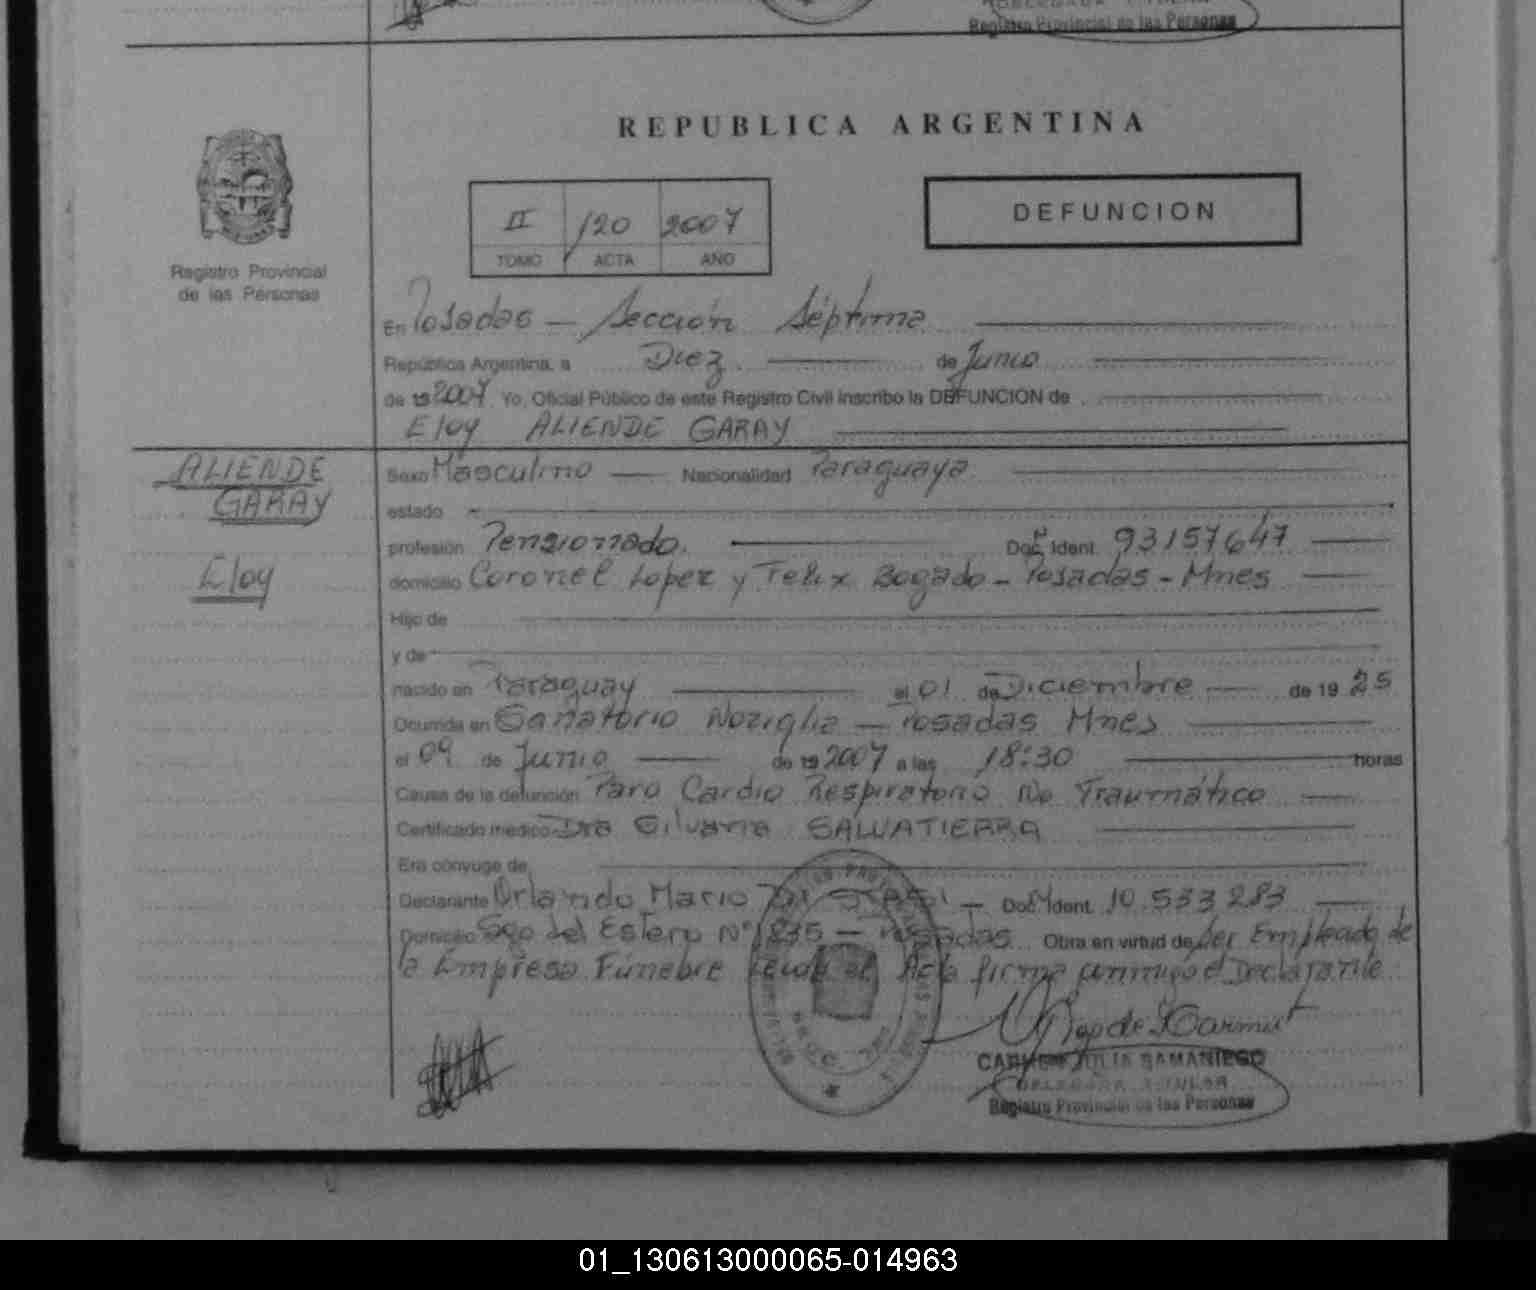 Registro Provincial de las Personas
REPUBLICA ARGENTINA
II 120 2007
TOMO ACTA AÑO
DEFUNCION
Registro Provincial
de las Personas
En Posadas — Sección Séptima
República Argentina, a Diez de Junio
de 19 2007 Yo, Oficial Público de este Registro Civil inscribo la DEFUNCION de
Eloy ALIENDE GARAY
ALIENDE
GARAY
Eloy
Sexo Masculino — Nacionalidad Paraguaya
estado
profesión Pensionado. Doc. Ident. 93157647
domicilio Coronel Lopez y Felix Bogado - Posadas - Mnes
Hijo de
y de
nacido en Paraguay el 01 de Diciembre de 19 25
Ocurrida en Sanatorio Noziglia — Posadas Mnes
el 09 de Junio de 19 2007 a las 18:30 horas
Causa de la defunción Paro Cardio Respiratorio No Traumático
Certificado médico Dra Silvana SALVATIERRA
Era cónyuge de
Declarante Orlando Mario — Doc. Ident. 10.533.283
Domicilio Sgo del Estero Nº 1835 — Posadas Obra en virtud de ser Empleado de
la Empresa Fúnebre Leída el Acta firma conmigo el Declarante
CARMEN JULIA SAMANIEGO
DELEGADA TITULAR
Registro Provincial de las Personas
01_130613000065-014963